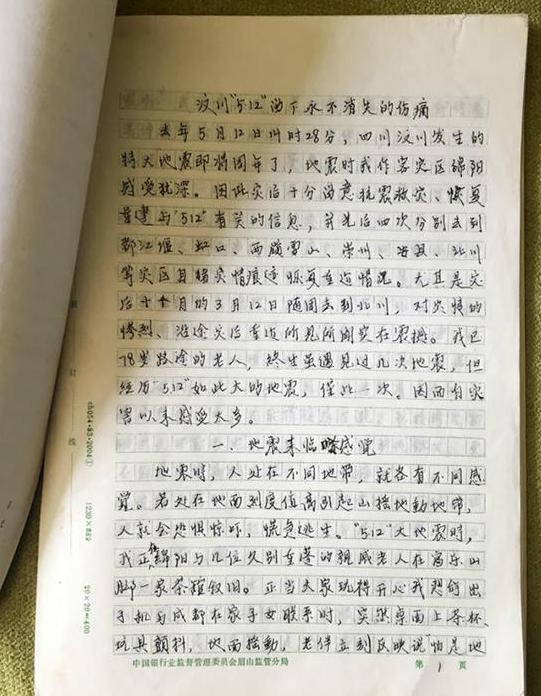 汶川"5.12"留下永不消失的伤痛
去年5月12日14时28分，四川汶川发生的
特大地震即将周年了，地震时我作客灾区绵阳
感受犹深。因此灾后十分留意抗震救灾、恢复
重建与"512"有关的信息，并先后四次分别去到
都江堰、虹口、西岭雪山、崇州、安县、北川
等灾区目睹灾情痕迹恢复重建情况。尤其是灾
后十个月的3月12日随团去到北川，对灾情的
惨烈、沿途灾后重建所见所闻实在震撼。我已
78岁的老人，终生虽遇见过几次地震，但
经历"512"如此大的地震，仅此一次。因而自灾
害以来感受太多。
一、地震来临感觉
地震时，人处在不同地带，就各有不同感
觉。若处在地面烈度值高引起山摇地动地带，
人就会恐惧惊吓，慌急逃生。"512"大地震时，
我正在绵阳与几位久别重逢的亲戚老人在富乐山
脚一家茶馆叙旧。正当大家玩得开心我想俯出
手机与成都在家子女联系时，突然桌面上茶杯、
玩具颤抖，地面摇动，老伴立刻反映说"怕是地
中国银行业监督管理委员会眉山监管分局
第 1 页
订
线
ch054·83·2004①
1230×882
20×20=400